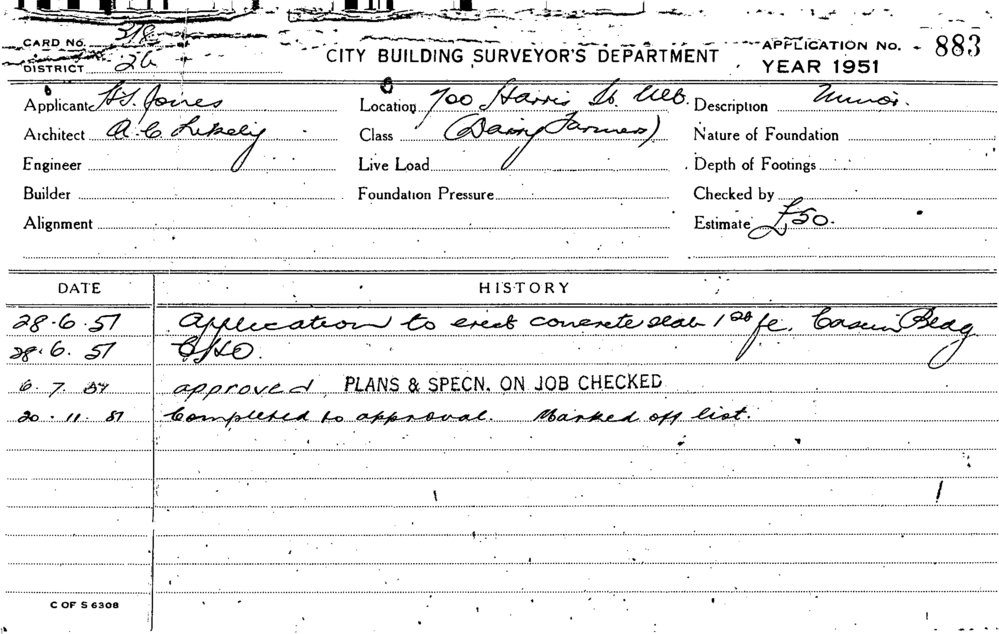 CARD No. 518
DISTRICT 26
CITY BUILDING SURVEYOR'S DEPARTMENT
APPLICATION No. - 883
YEAR 1951
Applicant H.S. Jones Location 700 Harris St. Ult. Description Minor.
Architect A. C. Likely Class (Dairy Farmers) Nature of Foundation
Engineer Live Load Depth of Footings
Builder Foundation Pressure Checked by
Alignment Estimate £50.
DATE HISTORY
28.6.51 Application to erect concrete slab 1st flr. Casein Bldg
28.6.51
6.7.51 approved PLANS & SPECN. ON JOB CHECKED
20.11.51 Completed to approval. Marked off list.
C OF S 6308